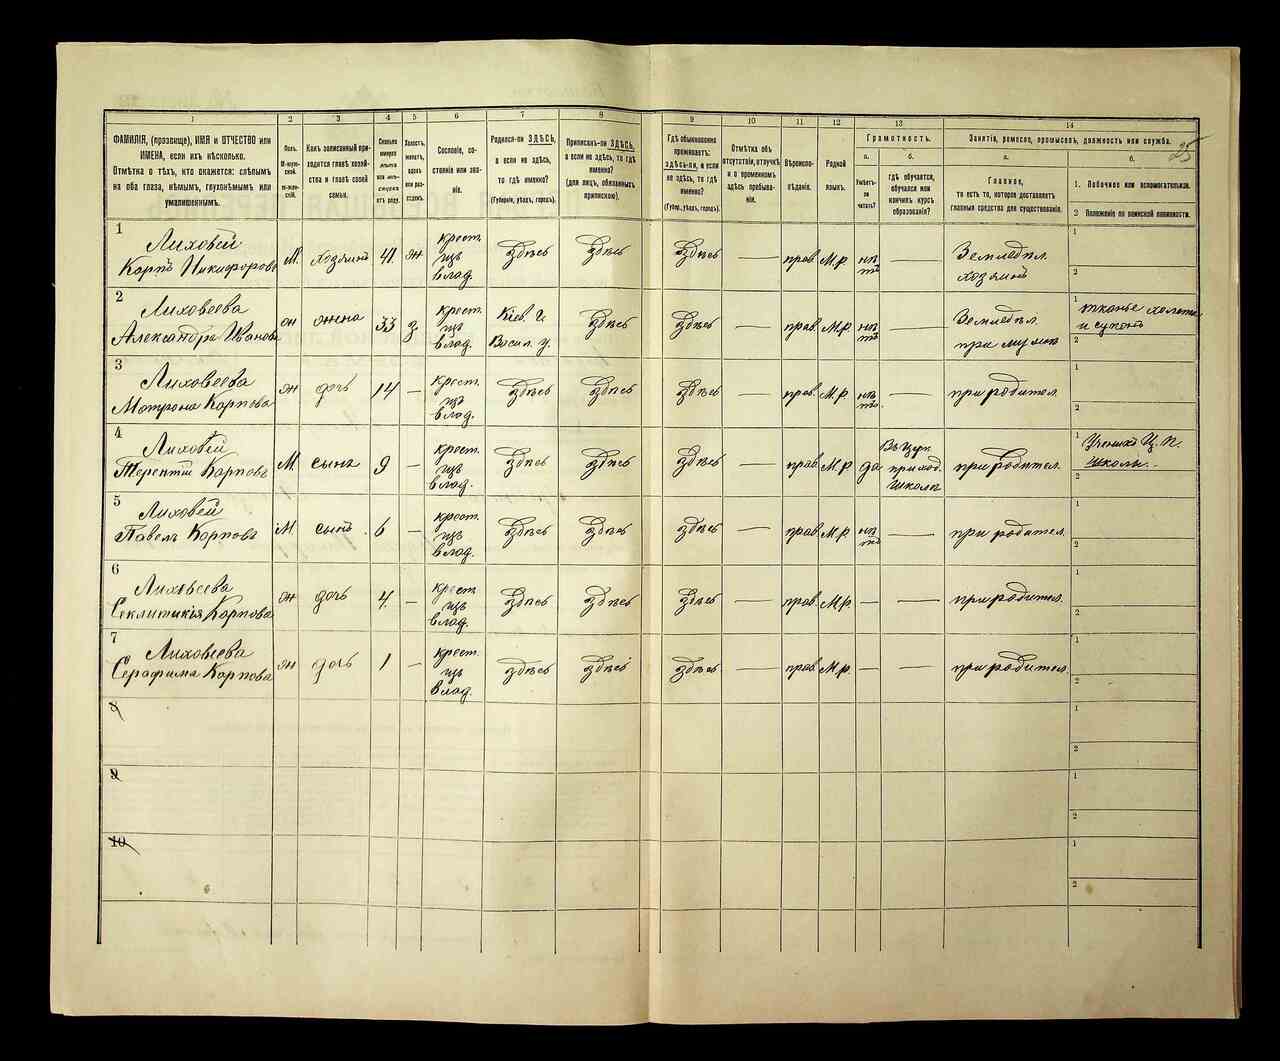 25
1 2 3 4 5 6 7 8 9 10 11 12 13 14
ФАМИЛІЯ, (прозвище), ИМЯ и ОТЧЕСТВО или
ИМЕНА, если ихъ нѣсколько.
Отмѣтка о тѣхъ, кто окажется: слѣпымъ
на оба глаза, нѣмымъ, глухонѣмымъ или
умалишеннымъ.
Полъ.
М-муж-
ской.
Ж-жен-
скій.
Какъ записанный при-
ходится главѣ хозяй-
ства и главѣ своей
семьи.
Сколько
минуло
лѣтъ
или мѣ-
сяцевъ
отъ роду.
Холостъ,
женатъ,
вдовъ
или раз-
веденъ.
Сословіе, со-
стояніе или зва-
ніе.
Родился-ли ЗДѢСЬ,
а если не здѣсь,
то гдѣ именно?
(Губернія, уѣздъ, городъ).
Приписанъ-ли ЗДѢСЬ,
а если не здѣсь, то гдѣ
именно?
(для лицъ, обязанныхъ
припискою).
Гдѣ обыкновенно
проживаетъ:
здѣсь-ли, а если
не здѣсь, то гдѣ
именно?
(Губер., уѣздъ, городъ).
Отмѣтка объ
отсутствіи, отлучкѣ
и о временномъ
здѣсь пребыва-
ніи.
Вѣроиспо-
вѣданіе.
Родной
языкъ.
Грамотность.
а.
Умѣетъ-
ли
читать?
б.
гдѣ обучается,
обучался или
кончилъ курсъ
образованія?
Занятіе, ремесло, промыселъ, должность или служба.
а.
Главное,
то есть то, которое доставляетъ
главныя средства для существованія.
б.
1. Побочное или вспомогательное.
2 Положеніе по воинской повинности.
1
Лиховей
Карпъ Никифоровъ М. хозяинъ 41 ж крест. изъ влад. здѣсь здѣсь здѣсь — прав. М.р. нѣтъ — Земледѣл. хозяинъ
1
2
2
Лиховеева
Александра Иванова ж жена 33 з. крест. изъ влад. Кіев. г. Васил. у. здѣсь здѣсь — прав. М.р. нѣтъ — Земледѣл. при мужѣ
1 тканье холста
и суконъ
2
3
Лиховеева
Мотрона Карпова ж дочь 14 — крест. изъ влад. здѣсь здѣсь здѣсь — прав. М.р. нѣтъ. — при родител.
1
2
4
Лиховей
Терентій Карповъ М. сынъ 9 — крест. изъ влад. здѣсь здѣсь здѣсь — прав. М.р. да Въ церк. приход. школѣ при родител.
1 Ученикъ Ц. П.
школы.
2
5
Лиховей
Павелъ Карповъ М. сынъ 6 — крест. изъ влад. здѣсь здѣсь здѣсь — прав. М.р. нѣтъ — при родител.
1
2
6
Лиховеева
Секлитикія Карпова ж дочь 4 — крест изъ влад. здѣсь здѣсь здѣсь — прав. М.р. — — при родител.
1
2
7
Лиховеева
Серафима Карпова ж дочь 1 — крест. изъ влад. здѣсь здѣсь здѣсь — прав. М.р. — — при родител.
1
2
8
1
2
9
1
2
10
1
2